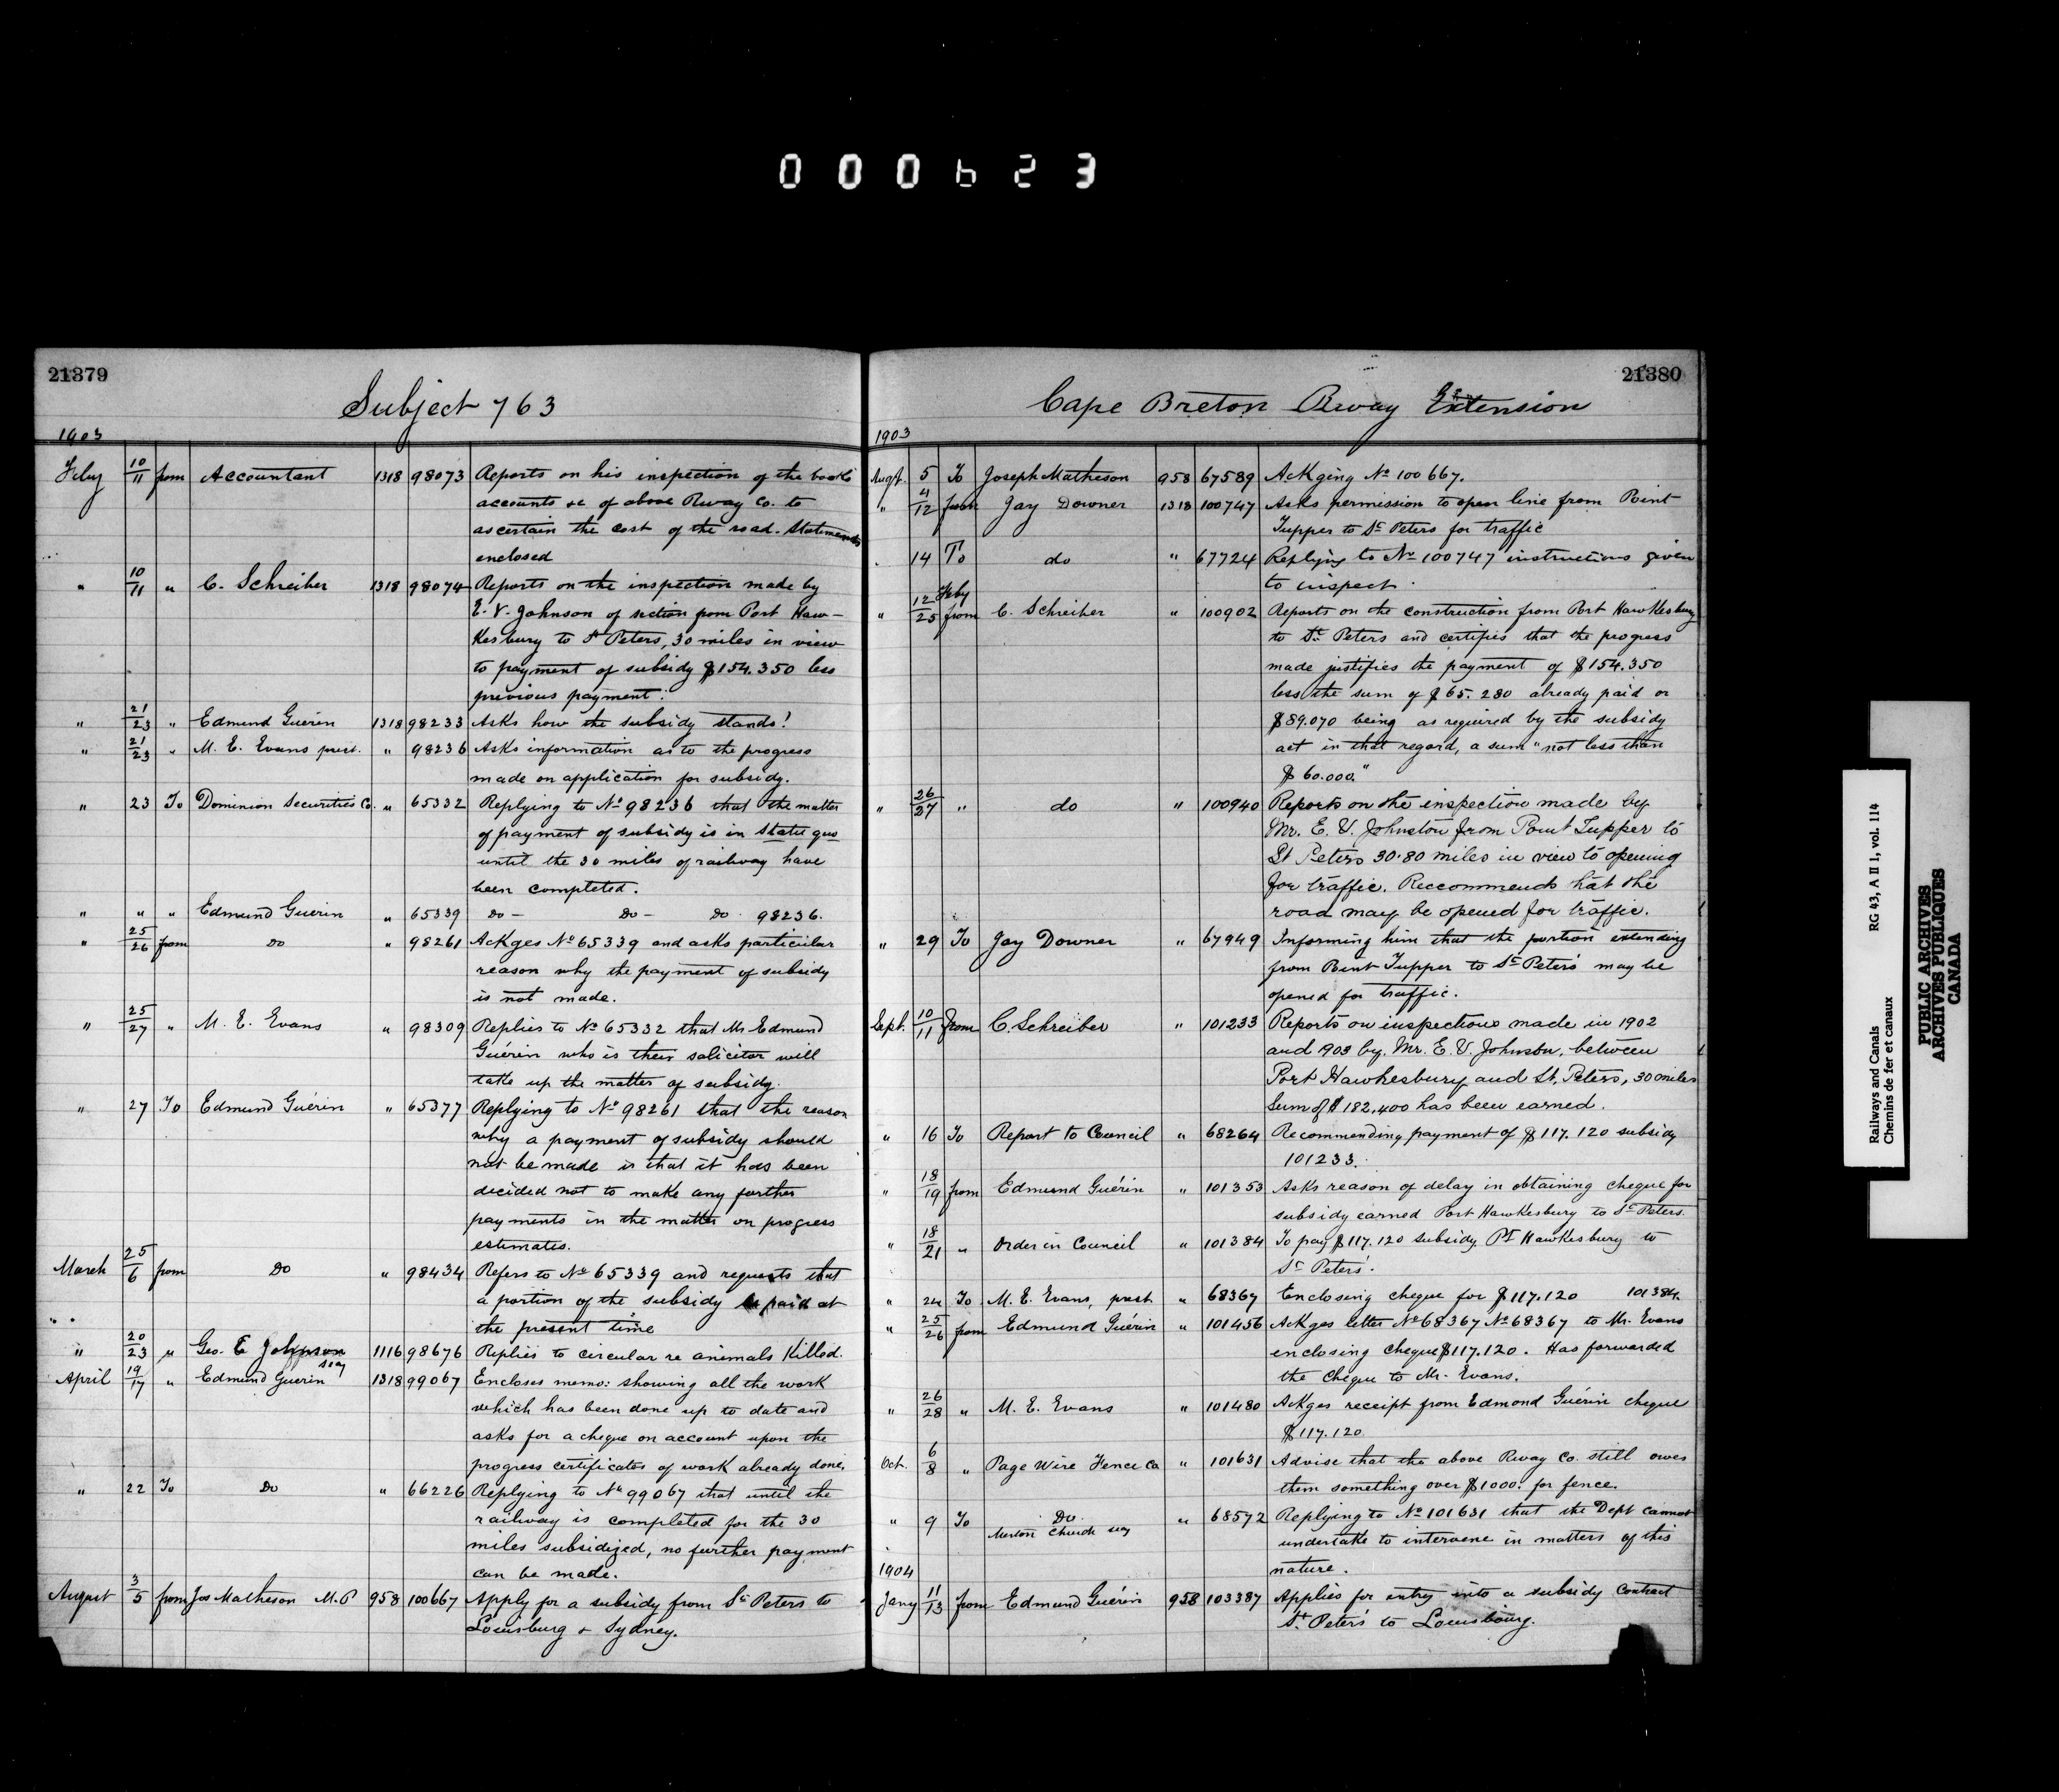 000623
21379
Subject 763
1903
Feby 10/11 from Accountant 1318 98073 Reports on his inspection of the books
accounts &c of above Rway Co. to
ascertain the cost of the road. Statements
enclosed
" 10/11 " C. Schreiber 1318 98074 Reports on the inspection made by
E. V. Johnson of section from Port Haw-
kesbury to St Peters, 30 miles in view
to payment of subsidy $154.350 less
previous payment.
" 21/23 " Edmund Guérin 1318 98233 Asks how the subsidy stands!
" 21/23 " M. E. Evans prest. " 98236 Asks information as to the progress
made on application for subsidy.
" 23 To Dominion Securities Co. " 65332 Replying to No 98236 that the matter
of payment of subsidy is in statu quo
until the 30 miles of railway have
been completed.
" " " Edmund Guerin " 65339 Do - Do - Do 98236.
" 25/26 from Do " 98261 Ackges No 65339 and asks particular
reason why the payment of subsidy
is not made.
" 25/27 " M. E. Evans " 98309 Replies to No 65332 that Mr Edmund
Guérin who is their solicitor will
take up the matter of subsidy.
" 27 To Edmund Guérin " 65377 Replying to No 98261 that the reason
why a payment of subsidy should
not be made is that it has been
decided not to make any further
payments in the matter on progress
estimates.
March 25/6 from Do " 98434 Refers to No 65339 and requests that
a portion of the subsidy be paid at
the present time
" 20/23 " Geo. E Johnson 1116 98676 Replies to circular re animals killed.
April 19/17 " Edmund Guerin 1318 99067 Encloses memo: showing all the work
which has been done up to date and
asks for a cheque on account upon the
progress certificates of work already done.
" 22 To Do " 66226 Replying to No 99067 that until the
railway is completed for the 30
miles subsidized, no further payment
can be made.
August 3/5 from Jos Matheson M.P 958 100667 Apply for a subsidy from St Peters to
Louisburg & Sydney.
21380
Cape Breton Rway Extension
1903
Augt. 5 To Joseph Matheson 958 67589 Ackging No 100667.
" 11/12 from Jay Downer 1318 100747 Asks permission to open line from Point
Tupper to St Peters for traffic
" 14 To do " 67724 Replying to No 100747 instructions given
to inspect.
" 12 Feby/25 from C. Schreiber " 100902 Reports on the construction from Port Hawkesbury
to St. Peters and certifies that the progress
made justifies the payment of $154.350
less the sum of $65.280 already paid or
$89.070 being as required by the subsidy
act in that regard, a sum "not less than
$60.000."
" 26/27 " do " 100940 Reports on the inspection made by
Mr. E. V. Johnston from Point Tupper to
St Peters 30.80 miles in view to opening
for traffic. Reccommends hat the
road may be opened for traffic.
" 29 To Jay Downer " 67949 Informing him that the portion extending
from Point Tupper to St Peter's may be
opened for traffic.
Sept. 10/11 from C. Schreiber " 101233 Reports on inspections made in 1902
and 1903 by Mr. E. V. Johnston, between
Port Hawkesbury and St. Peters, 30 miles
Sum of $182,400 has been earned.
" 16 To Report to Council " 68264 Recommending payment of $117.120 subsidy
101233.
" 18/19 from Edmund Guérin " 101353 Asks reason of delay in obtaining cheque for
subsidy earned Port Hawkesbury to St Peters.
" 18/21 " Order in Council " 101384 To pay $117.120 subsidy Pt Hawkesbury to
St Peters'.
" 24 To M. E. Evans, prest " 68367 Enclosing cheque for $117.120 101384
" 25/26 from Edmund Guérin " 101456 Ackges letter No 68367 No 68367 to Mr. Evans
enclosing cheque $117.120. Has forwarded
the cheque to Mr. Evans.
" 26/28 " M. E. Evans " 101480 Ackges receipt from Edmond Guérin cheque
$117.120
Oct. 6/8 " Page Wire Fence Co " 101631 Advise that the above Rway Co. still owes
them something over $1000. for fence.
" 9 To Do " 68572 Replying to No 101631 that the Dept cannot
Merton Church secy
undertake to intervene in matters of this
nature.
1904
Jany 11/13 from Edmund Guérin 958 103387 Applies for entry into a subsidy contract
St. Peter's to Louisbourg.
Railways and Canals RG 43, A II 1, vol. 114
Chemins de fer et canaux
PUBLIC ARCHIVES
ARCHIVES PUBLIQUES
CANADA